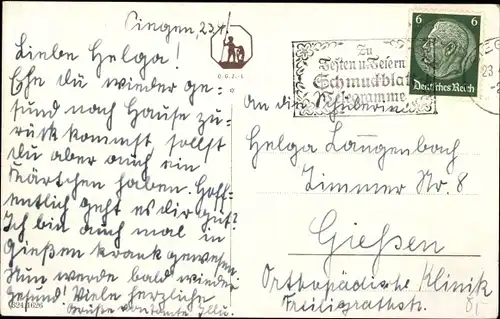 Singen, 23.4.
Liebe Helga!
Ehe du wieder ge-
sund nach Hause zu-
rück kommst, sollst
du aber auch ein
Kärtchen haben. Hoff-
entlich geht es dir gut?
Ich bin auch mal in
Gießen krank gewesen.
Nun werde bald wieder
gesund! Viele herzliche
Grüße von Tante Illu.
624/1626
Zu
Festen u. Feiern
Schmuckblatt
Telegramme
6 6
Deutsches Reich
23.
An die Schülerin
Helga Langenbach
Zimmer Nr. 8
Gießen
Orthopädische Klinik
Freiligrathstr.